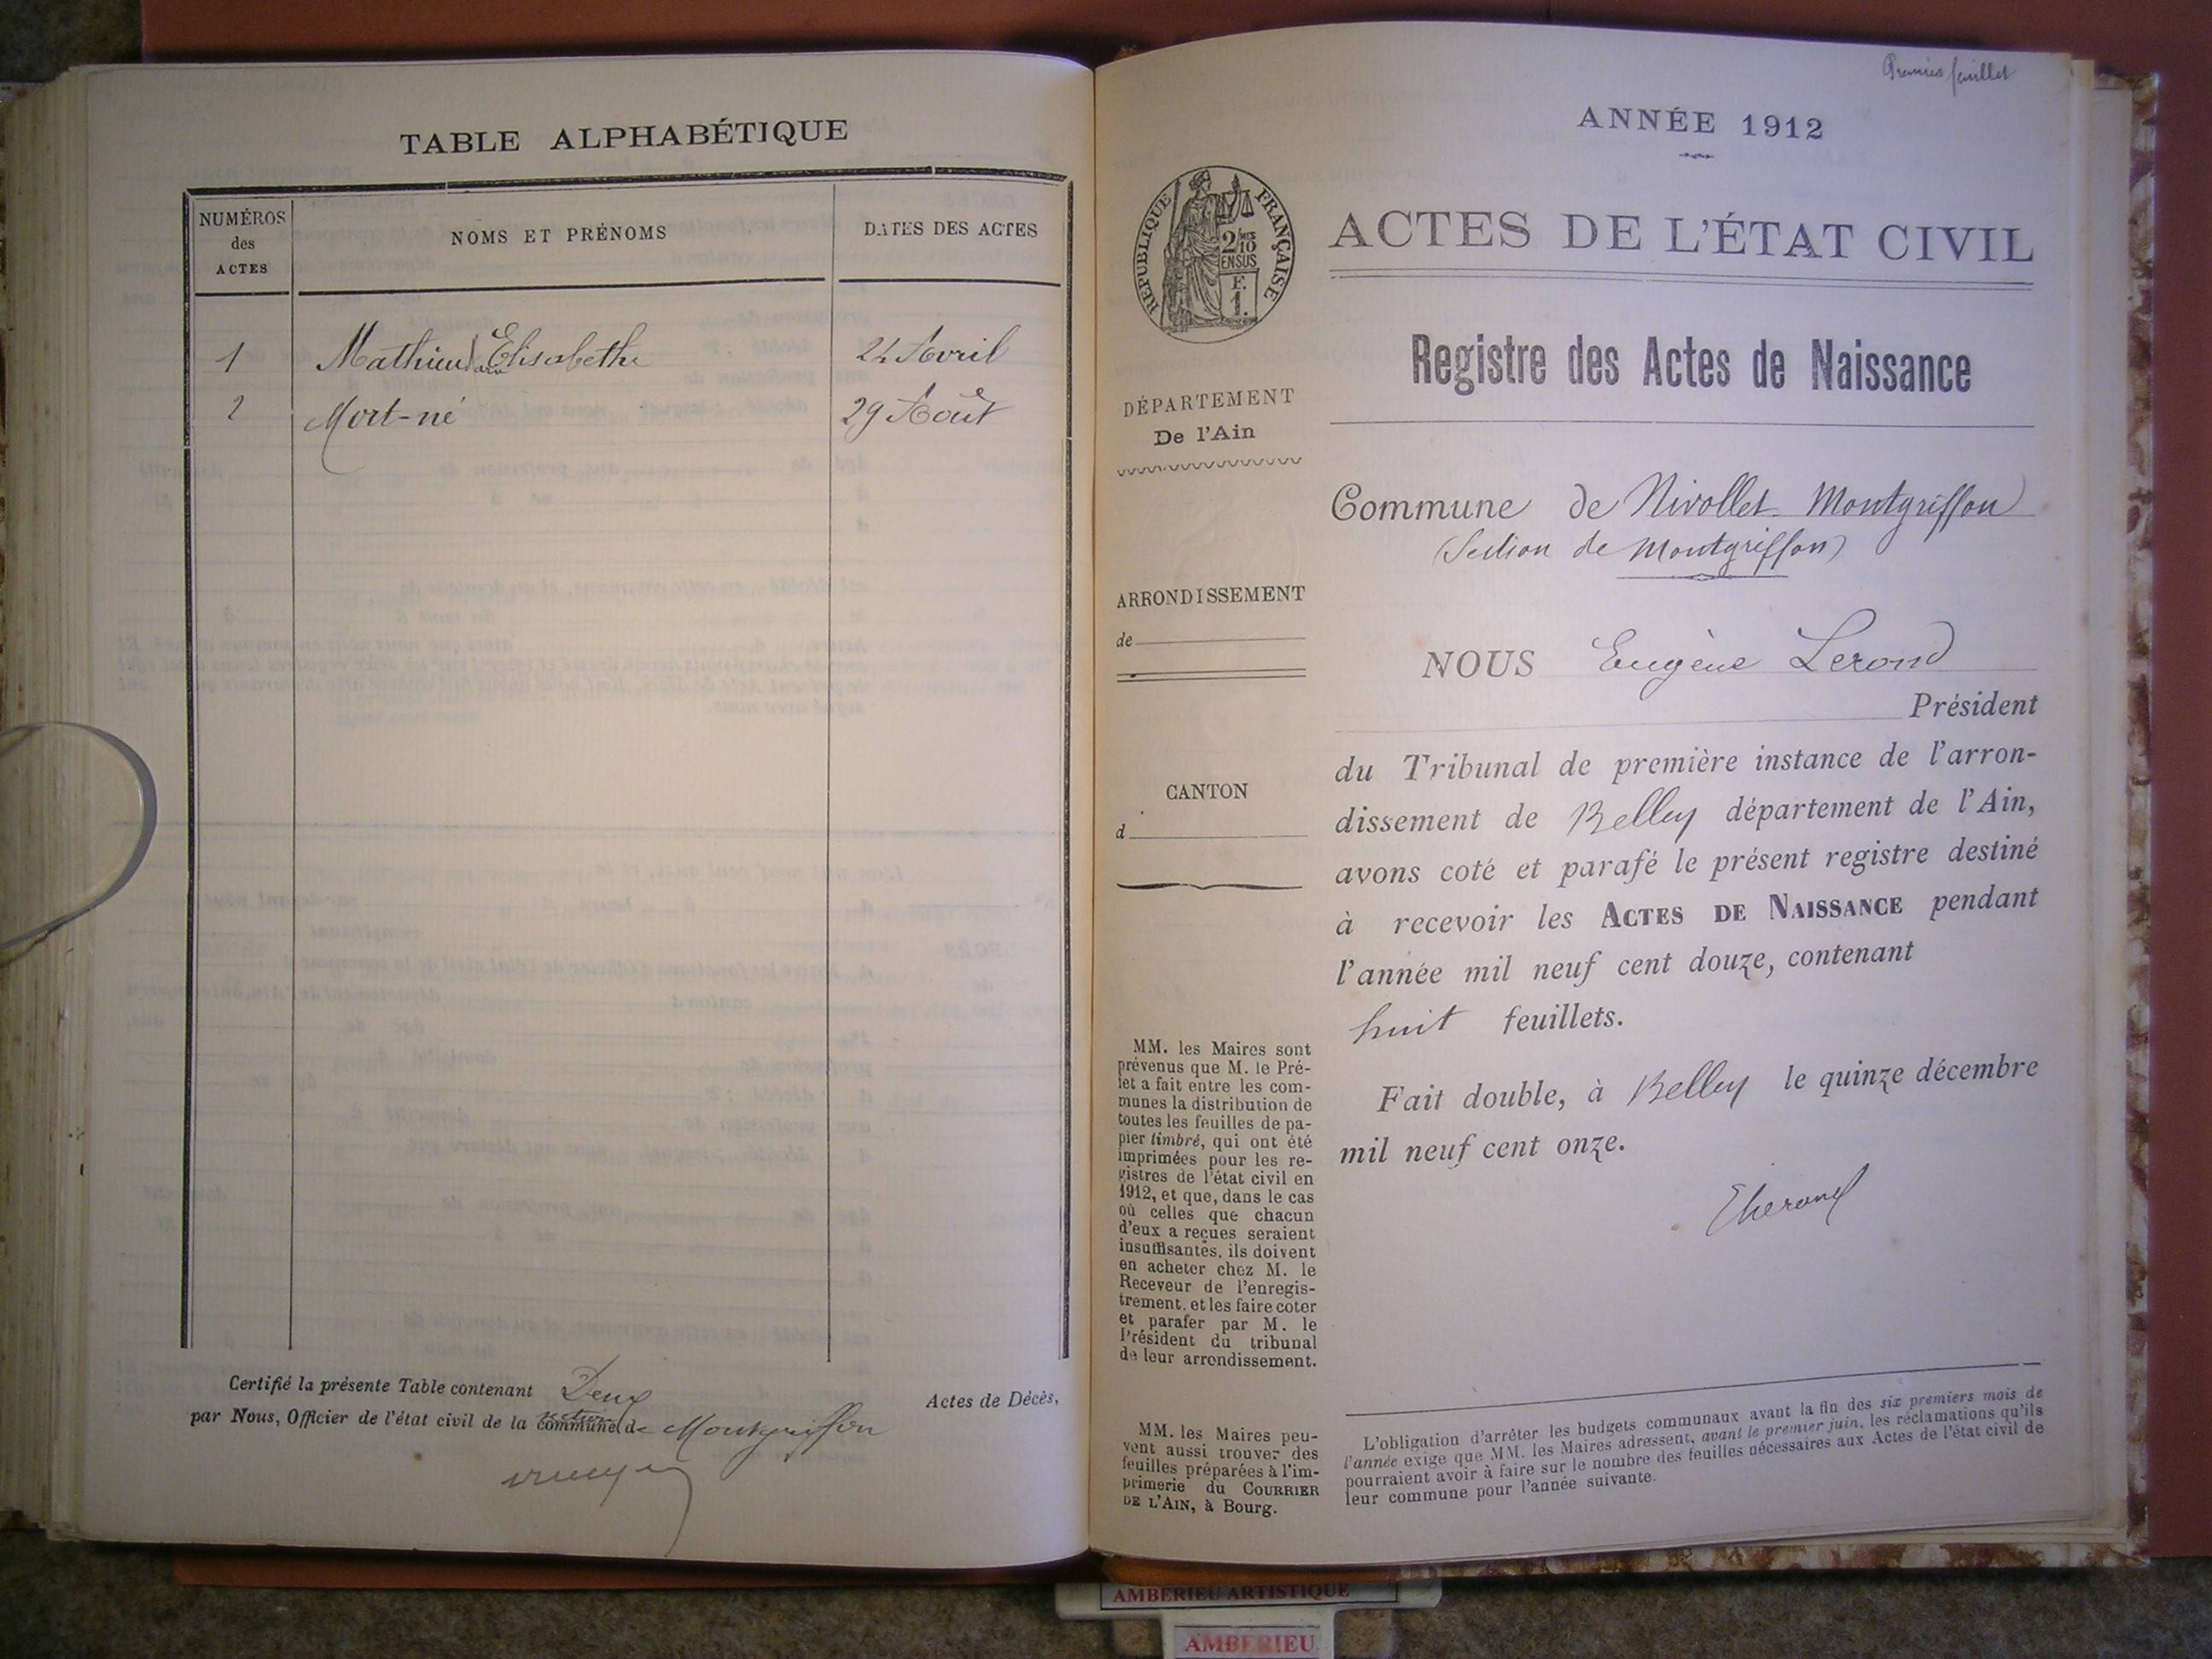 TABLE ALPHABÉTIQUE
NUMÉROS
des
ACTES
NOMS ET PRÉNOMS
DATES DES ACTES
1 Mathieu Elisabethe 24 Avril
2 Mort-né 29 Août
Certifié la présente Table contenant Deux Actes de Décès,
par Nous, Officier de l'état civil de la commune de Montgriffon
Premier feuillet
ANNÉE 1912
RÉPUBLIQUE FRANÇAISE
ACTES DE L'ÉTAT CIVIL
Registre des Actes de Naissance
DÉPARTEMENT
De l'Ain
Commune de Nivollet Montgriffon
(Section de Montgriffon)
ARRONDISSEMENT
de
NOUS Eugène Lerond
Président
du Tribunal de première instance de l'arron-
dissement de Belley département de l'Ain,
avons coté et parafé le présent registre destiné
à recevoir les ACTES DE NAISSANCE pendant
l'année mil neuf cent douze, contenant
huit feuillets.
Fait double, à Belley le quinze décembre
mil neuf cent onze.
CANTON
d
MM. les Maires sont
prévenus que M. le Pré-
fet a fait entre les com-
munes la distribution de
toutes les feuilles de pa-
pier timbré, qui ont été
imprimées pour les re-
gistres de l'état civil en
1912, et que, dans le cas
où celles que chacun
d'eux a reçues seraient
insuffisantes, ils doivent
en acheter chez M. le
Receveur de l'enregis-
trement, et les faire coter
et parafer par M. le
Président du tribunal
de leur arrondissement.
MM. les Maires peu-
vent aussi trouver des
feuilles préparées à l'im-
primerie du COURRIER
DE L'AIN, à Bourg.
L'obligation d'arrêter les budgets communaux avant la fin des six premiers mois de
l'année exige que MM. les Maires adressent, avant le premier juin, les réclamations qu'ils
pourraient avoir à faire sur le nombre des feuilles nécessaires aux Actes de l'état civil de
leur commune pour l'année suivante.
AMBERIEU ARTISTIQUE
AMBERIEU